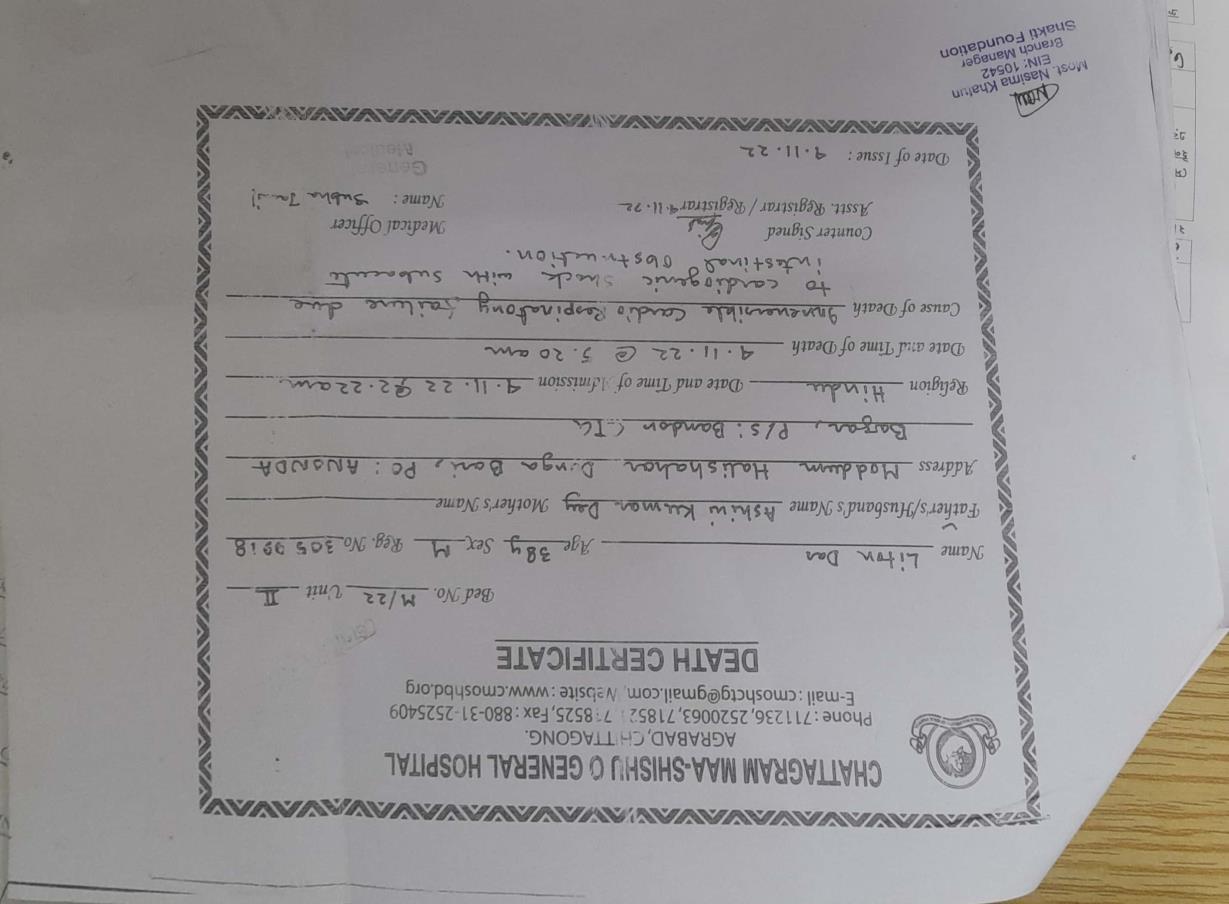 CHATTAGRAM MAA-SHISHU O GENERAL HOSPITAL
AGRABAD, CHITTAGONG.
Phone : 711236, 2520063, 71852 7 8525, Fax : 880-31-2525409
E-mail : cmoshctg@gmail.com, Website : www.cmoshbd.org
DEATH CERTIFICATE
Bed No. M/22 Unit II
Name Liton Das Age 38y Sex M Reg. No.
Father's/Husband's Name Kumar Dey Mother's Name
Address Maddum Halishahar Dinga Bari, PO: ANONDA
Bazar, P/S: Bandor CTG
Religion Hindu Date and Time of Admission 9.11.22 @2.22am
Date and Time of Death 9.11.22 @ 5.20am
Cause of Death Irreversible Cardio Respiratory failure due
to cardiogenic shock with subacute
intestinal Obstruction.
Counter Signed
Medical Officer
Asstt. Registrar / Registrar 9.11.22
Name : Subha
General
Medical
Date of Issue : 9.11.22
Most. Nasima Khatun
EIN: 10542
Branch Manager
Shakti Foundation